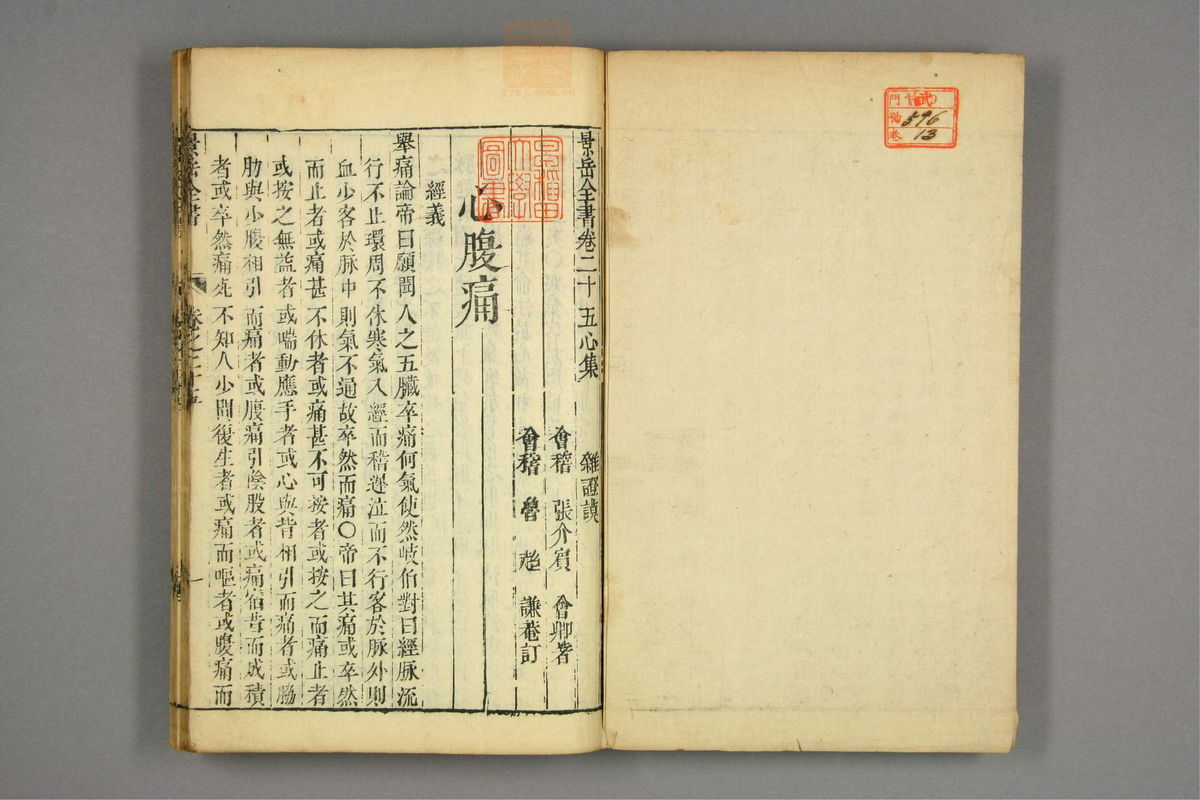 門
號 596
卷 13
景岳全書卷二十五心集 雜證謨
會稽 張介賓 會卿著
會稽 魯 超 謙菴訂
早稻田大學圖書
心腹痛
經義
舉痛論帝曰願聞人之五臟卒痛何氣使然岐伯對曰經脉流
行不止環周不休寒氣入經而稽遲泣而不行客於脉外則
血少客於脉中則氣不通故卒然而痛〇帝曰其痛或卒然
而止者或痛甚不休者或痛甚不可按者或按之而痛止者
或按之無益者或喘動應手者或心與背相引而痛者或脇
肋與少腹相引而痛者或腹痛引陰股者或痛宿昔而成積
者或卒然痛死不知人少間復生者或痛而嘔者或腹痛而
景岳全書 卷之二十五 一